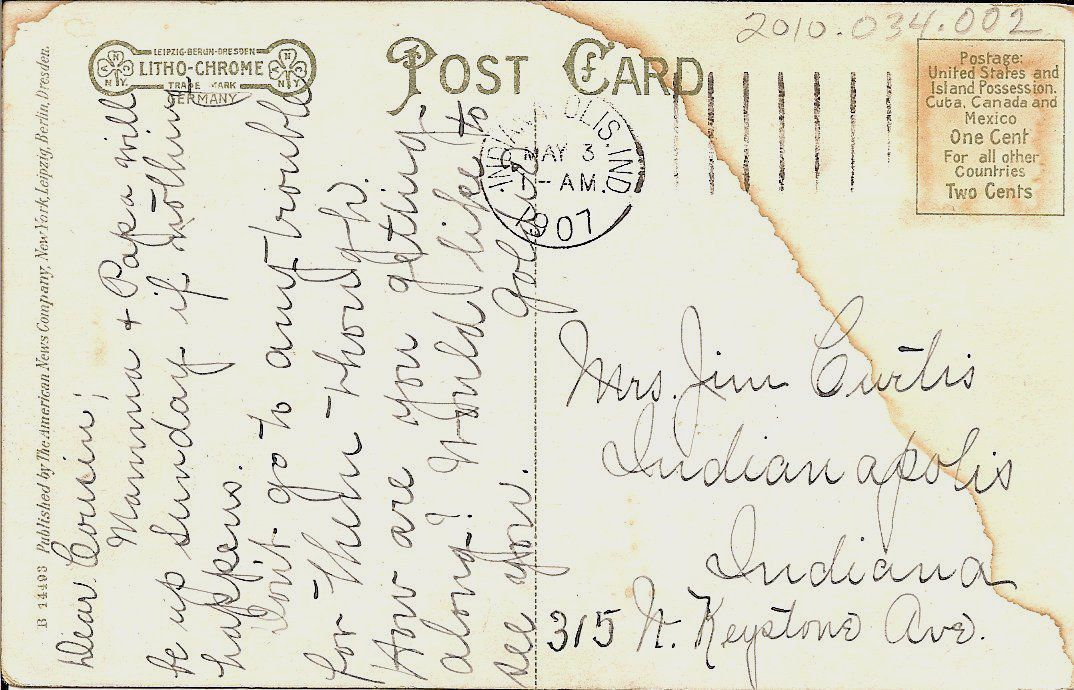 2010.034.002
LEIPZIG-BERLIN-DRESDEN
LITHO-CHROME
TRADE MARK
GERMANY
POST CARD
Postage:
United States and
Island Possession.
Cuba, Canada and
Mexico
One Cent
For all other
Countries
Two Cents
INDIANAPOLIS, IND.
MAY 3
AM
1907
B 14493 Published by The American News Company, New York, Leipzig, Berlin, Dresden.
Dear Cousin;
Mamma + Papa will
be up Sunday if nothing
happens.
Don't go to any trouble
for them though.
How are you getting
along? Would like to
see you.
Mrs. Jim Curtis
Indianapolis
Indiana
315 N. Keystone Ave.